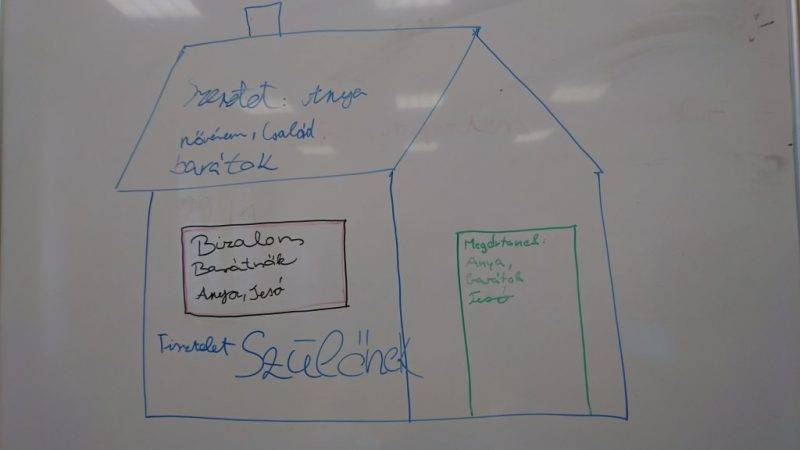 Szeretet: Anya
nővérem, Család.
barátok
Bizalom
Barátnők
Anya, Tesó
Tisztelet Szülőnek
Megértenek:
Anya,
barátok
Tesó